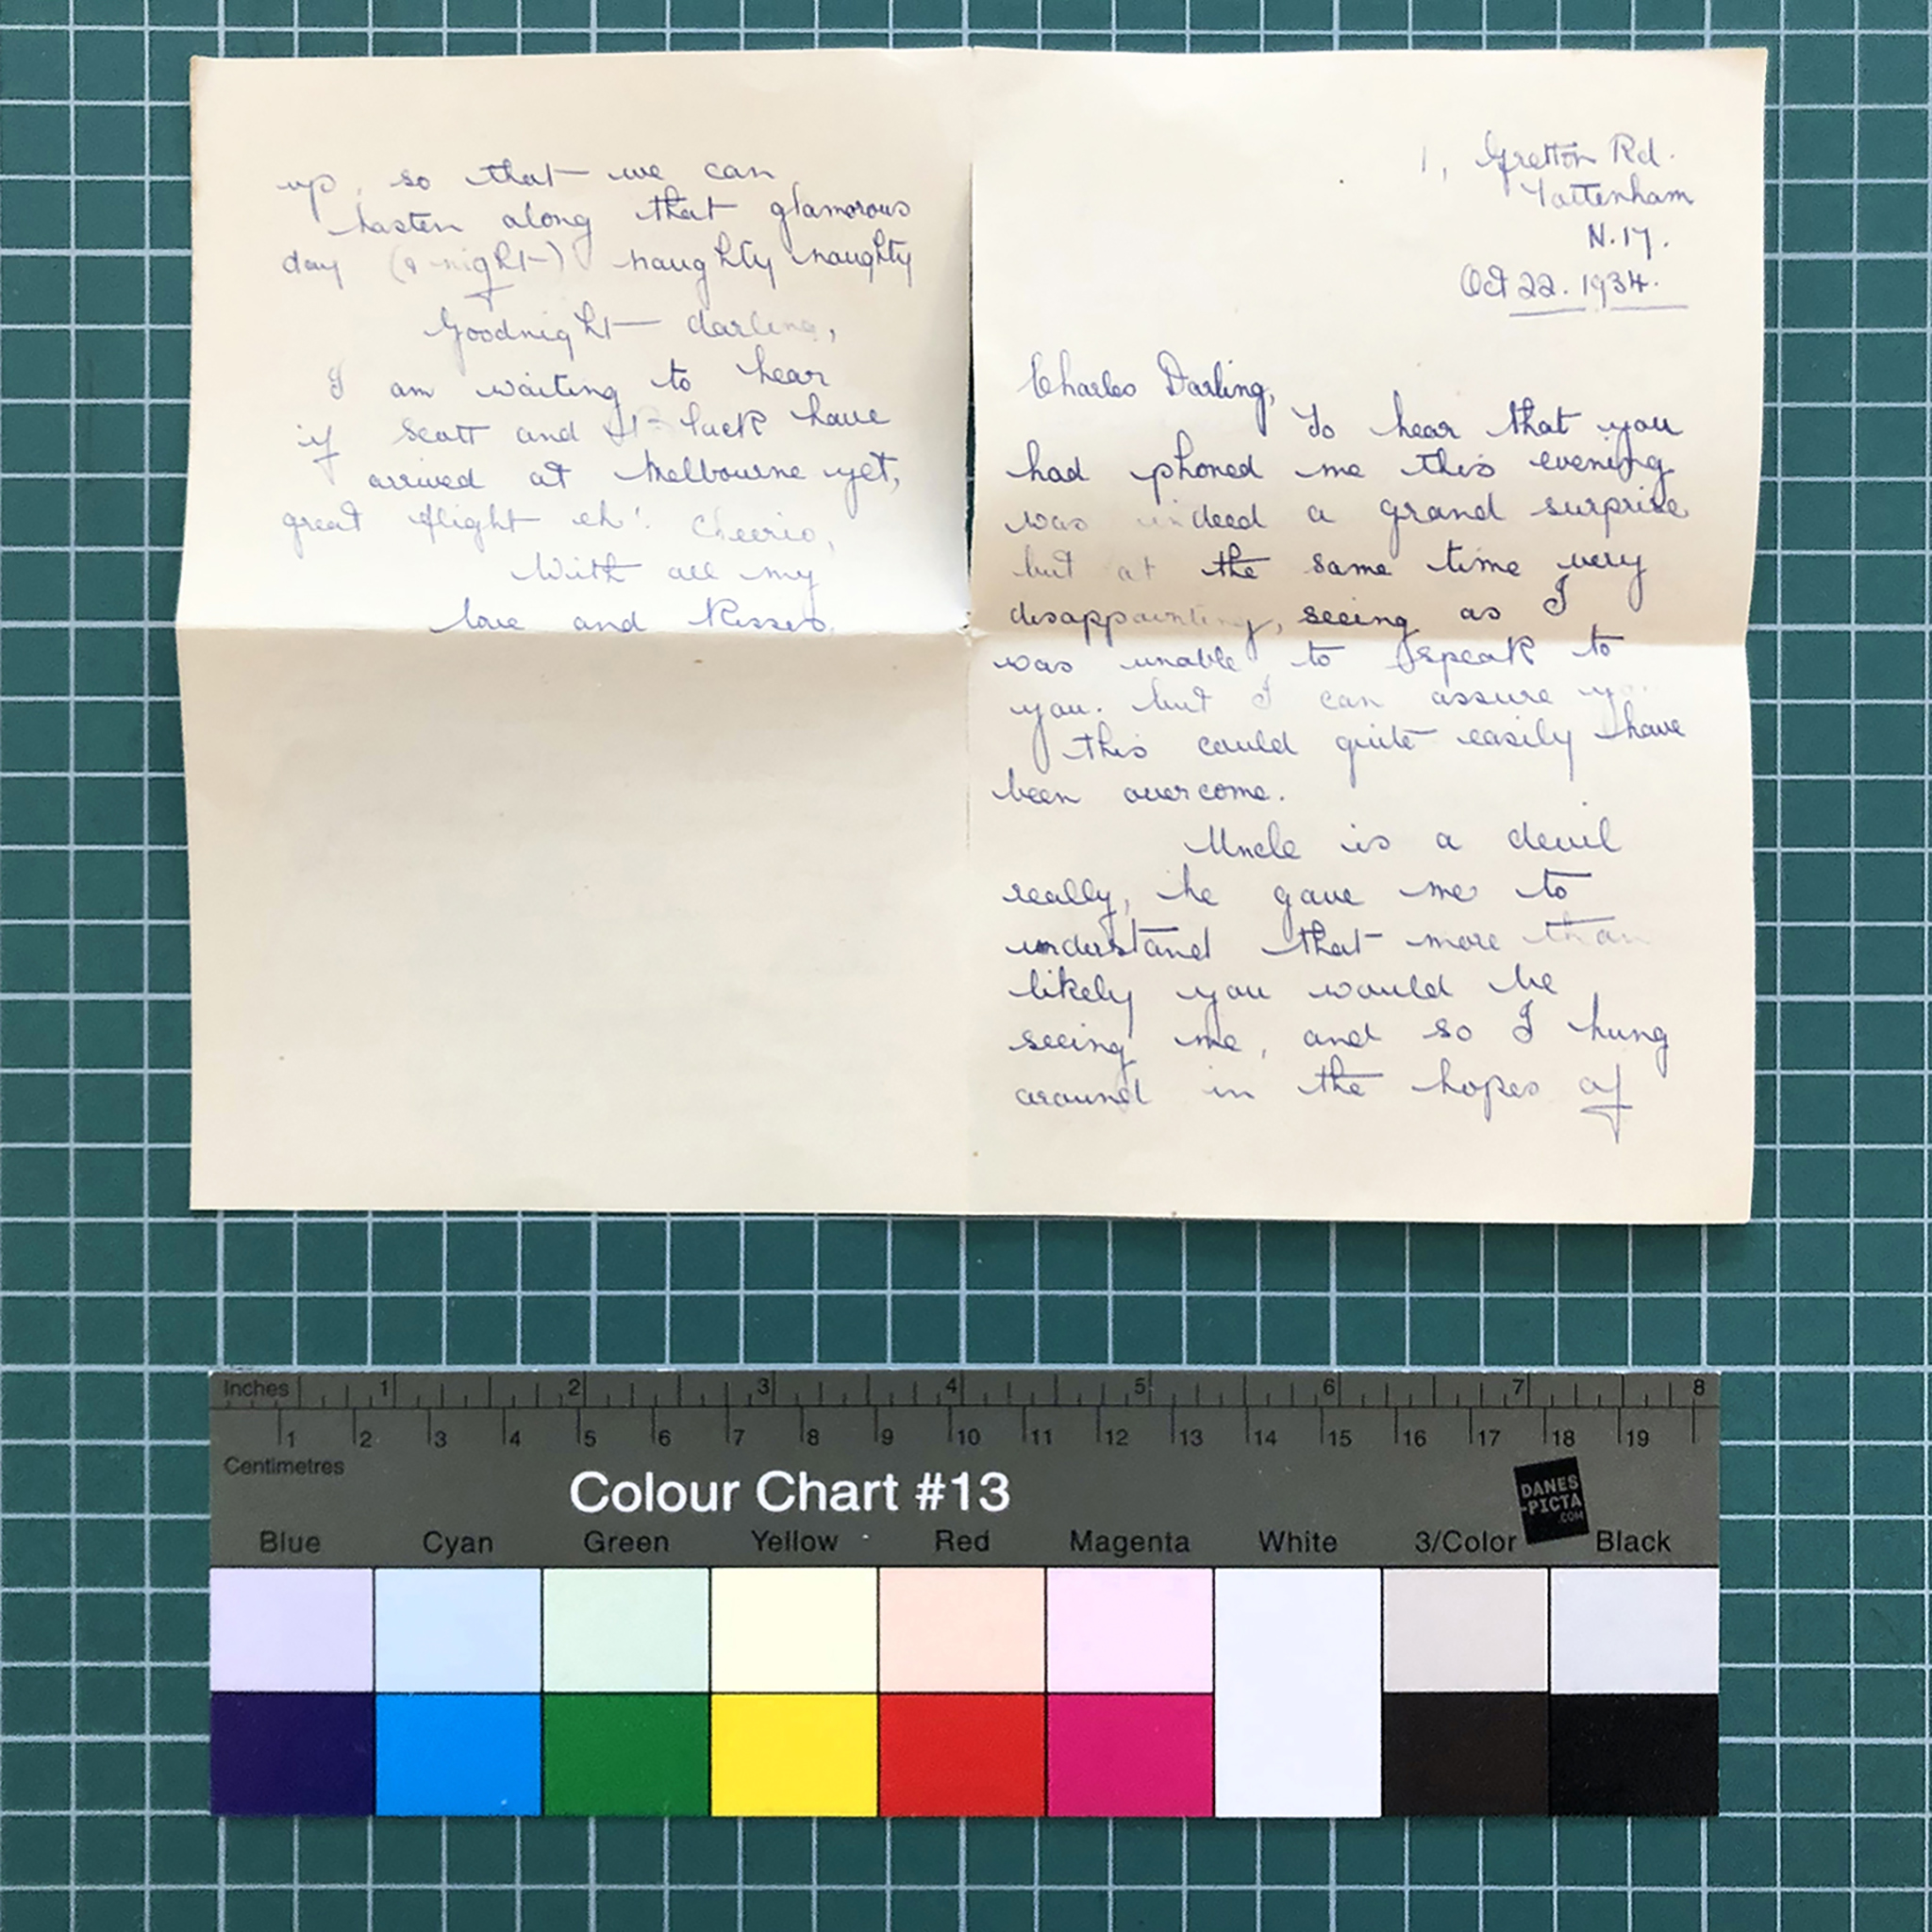 up, so that we can
hasten along that glamorous
day (& night) naughty naughty
Goodnight darling,
I am waiting to hear
if Scott and Black have
arrived at Melbourne yet,
great flight eh! Cheerio,
With all my
love and Kisses.
1, Gretton Rd.
Tottenham
N.17.
Oct 22. 1934.
Charles Darling,
To hear that you
had phoned me this evening
was indeed a grand surprise
but at the same time very
disappointing, seeing as I
was unable to speak to
you. but I can assure you
this could quite easily have
been overcome.
Uncle is a devil
really, he gave me to
understand that more than
likely you would be
seeing me, and so I hung
around in the hopes of
Inches 1 2 3 4 5 6 7 8
1 2 3 4 5 6 7 8 9 10 11 12 13 14 15 16 17 18 19
Centimetres
Colour Chart #13
DANES
-PICTA
.COM
Blue Cyan Green Yellow Red Magenta White 3/Color Black